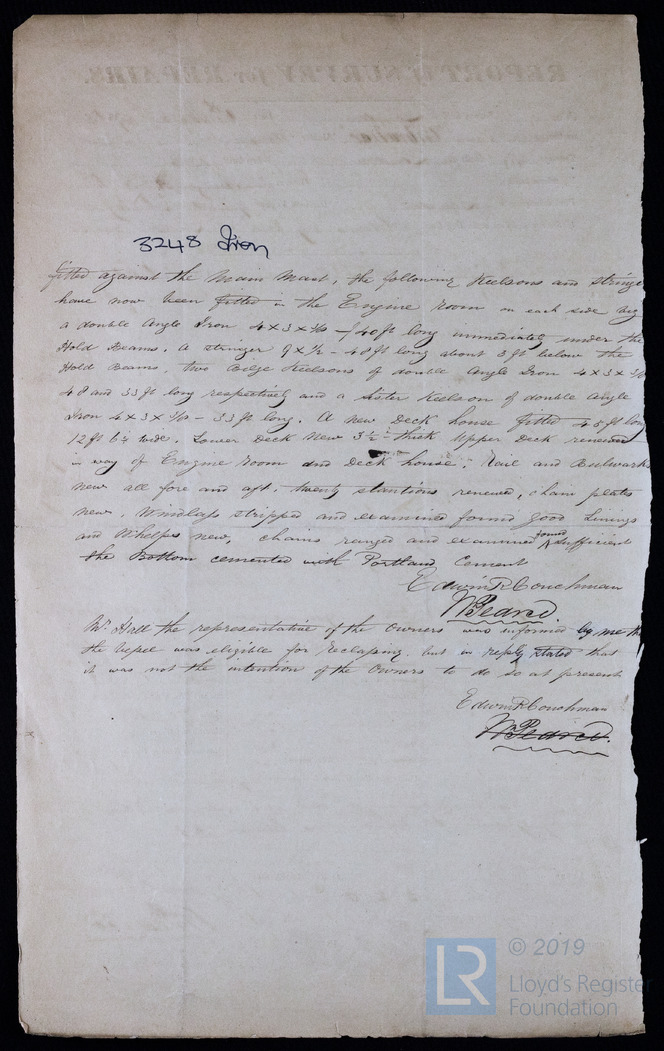 REPORT of SURVEY for REPAIRS.
3248 Iron
fitted against the Main Mast, the following Keelsons and
have now been fitted in the Engine Room on each side
a double Angle Iron 4 x 3 x 40 ft long immediately under the
Hold Beams. A stringer 9 x ½ - 40 ft long about 3 ft below the
Hold Beams, two Bilge Keelsons of double Angle Iron 4 x 3 x
48 and 33 ft long respectively and a Sister Keelson of double Angle
Iron 4 x 3 x - 33 ft long. A new Deck house fitted 45 ft long
12 ft wide. Lower Deck New 3½" thick Upper Deck renewed
in way of Engine Room and Deck house; Rail and Bulwarks
new all fore and aft. twenty stantions renewed, chain plates
new, Windlass stripped and examined found good Linings
and Whelps new, chains ranged and examined found sufficient
the Bottom cemented with Portland Cement
Edwin R Couchman
W Pearce
Mr. Hall the representative of the Owners was informed by me
the vessel was eligible for reclassing, but in reply stated that
it was not the intention of the Owners to do so at present
Edwin R Couchman
W Pearce.
LR
© 2019
Lloyd's Register
Foundation